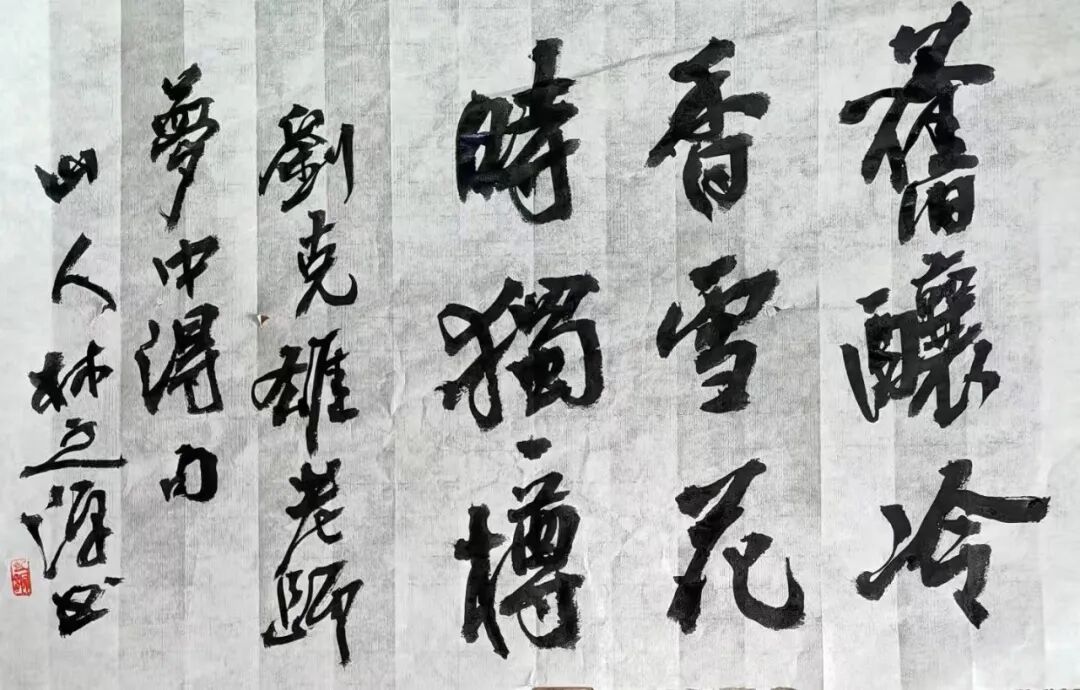 舊釀冷
香雪花
時獨一樽
劉克雄老師
夢中得句
山人林立書